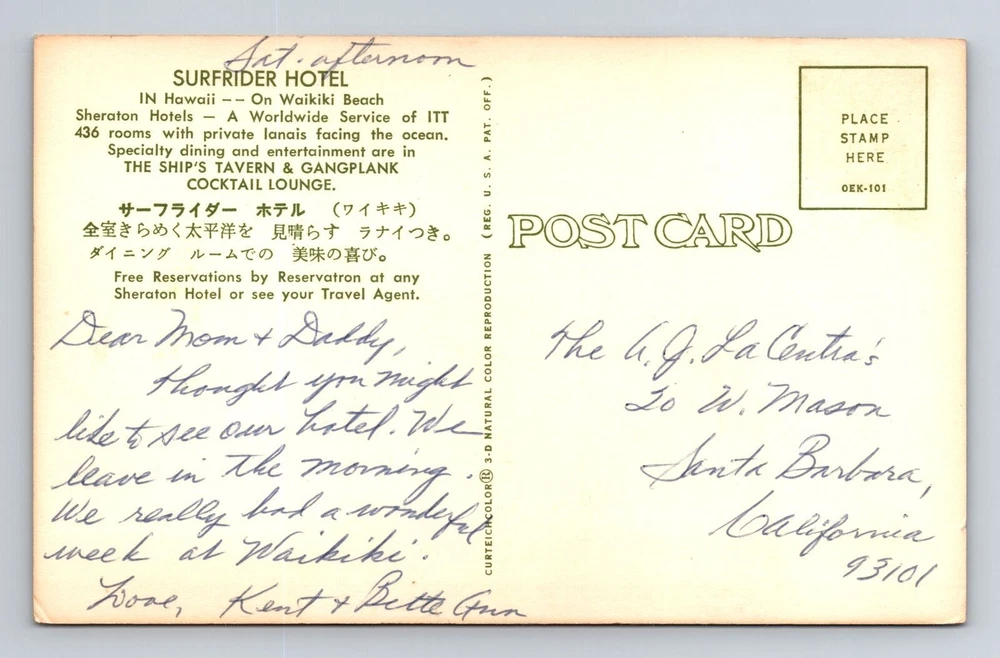 Sat. afternoon
SURFRIDER HOTEL
IN Hawaii -- On Waikiki Beach
Sheraton Hotels — A Worldwide Service of ITT
436 rooms with private lanais facing the ocean.
Specialty dining and entertainment are in
THE SHIP'S TAVERN & GANGPLANK
COCKTAIL LOUNGE.
サーフライダー ホテル (ワイキキ)
全室きらめく太平洋を 見晴らす ラナイつき。
ダイニング ルームでの 美味の喜び。
Free Reservations by Reservatron at any
Sheraton Hotel or see your Travel Agent.
Dear Mom + Daddy,
Thought you might
like to see our hotel. We
leave in the morning.
We really had a wonderful
week at Waikiki.
Love, Kent + Bette Ann
CURTEICHCOLOR® 3-D NATURAL COLOR REPRODUCTION (REG. U. S. A. PAT. OFF.)
PLACE
STAMP
HERE
OEK-101
POST CARD
The A. J. La Centra's
20 W. Mason
Santa Barbara,
California
93101